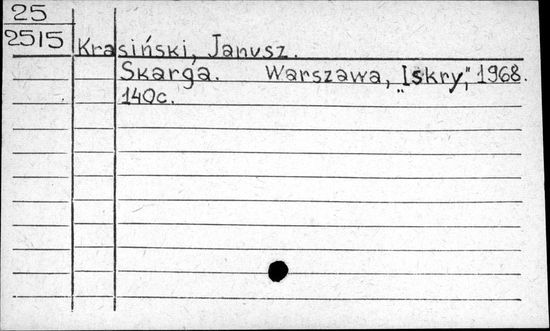 25
2515
Krasiński, Janusz.
Skarga. Warszawa, „Iskry", 1968.
140c.